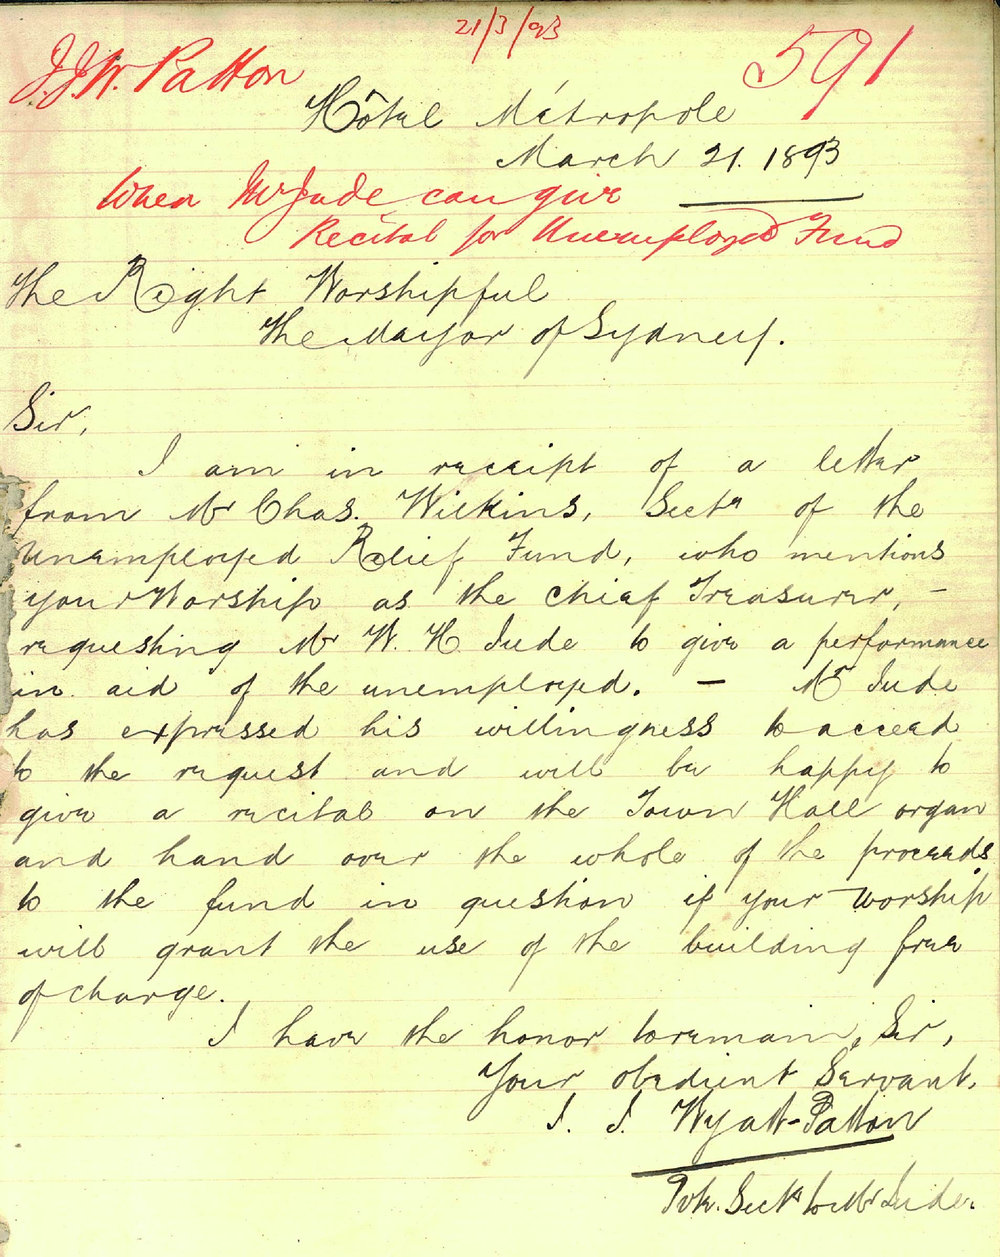 21/3/93
591
J.J.W. Patton
Hôtel Métropole
March 21. 1893
When Mr Jude can give
Recital for Unemployed Fund
The Right Worshipful
The Mayor of Sydney.
Sir,
I am in receipt of a letter
from Mr Chas. Wilkins, Secty of the
Unemployed Relief Fund, who mentions
your Worship as the chief Treasurer, –
requesting Mr W. H. Jude to give a performance
in aid of the unemployed. – Mr Jude
has expressed his willingness to acceed
to the request and will be happy to
give a recital on the Town Hall organ
and hand over the whole of the proceeds
to the fund in question if your Worship
will grant the use of the building free
of charge.
I have the honor to remain, Sir,
Your obedient Servant,
J. J. Wyatt-Patton
Pvte. Secty to Mr Jude.